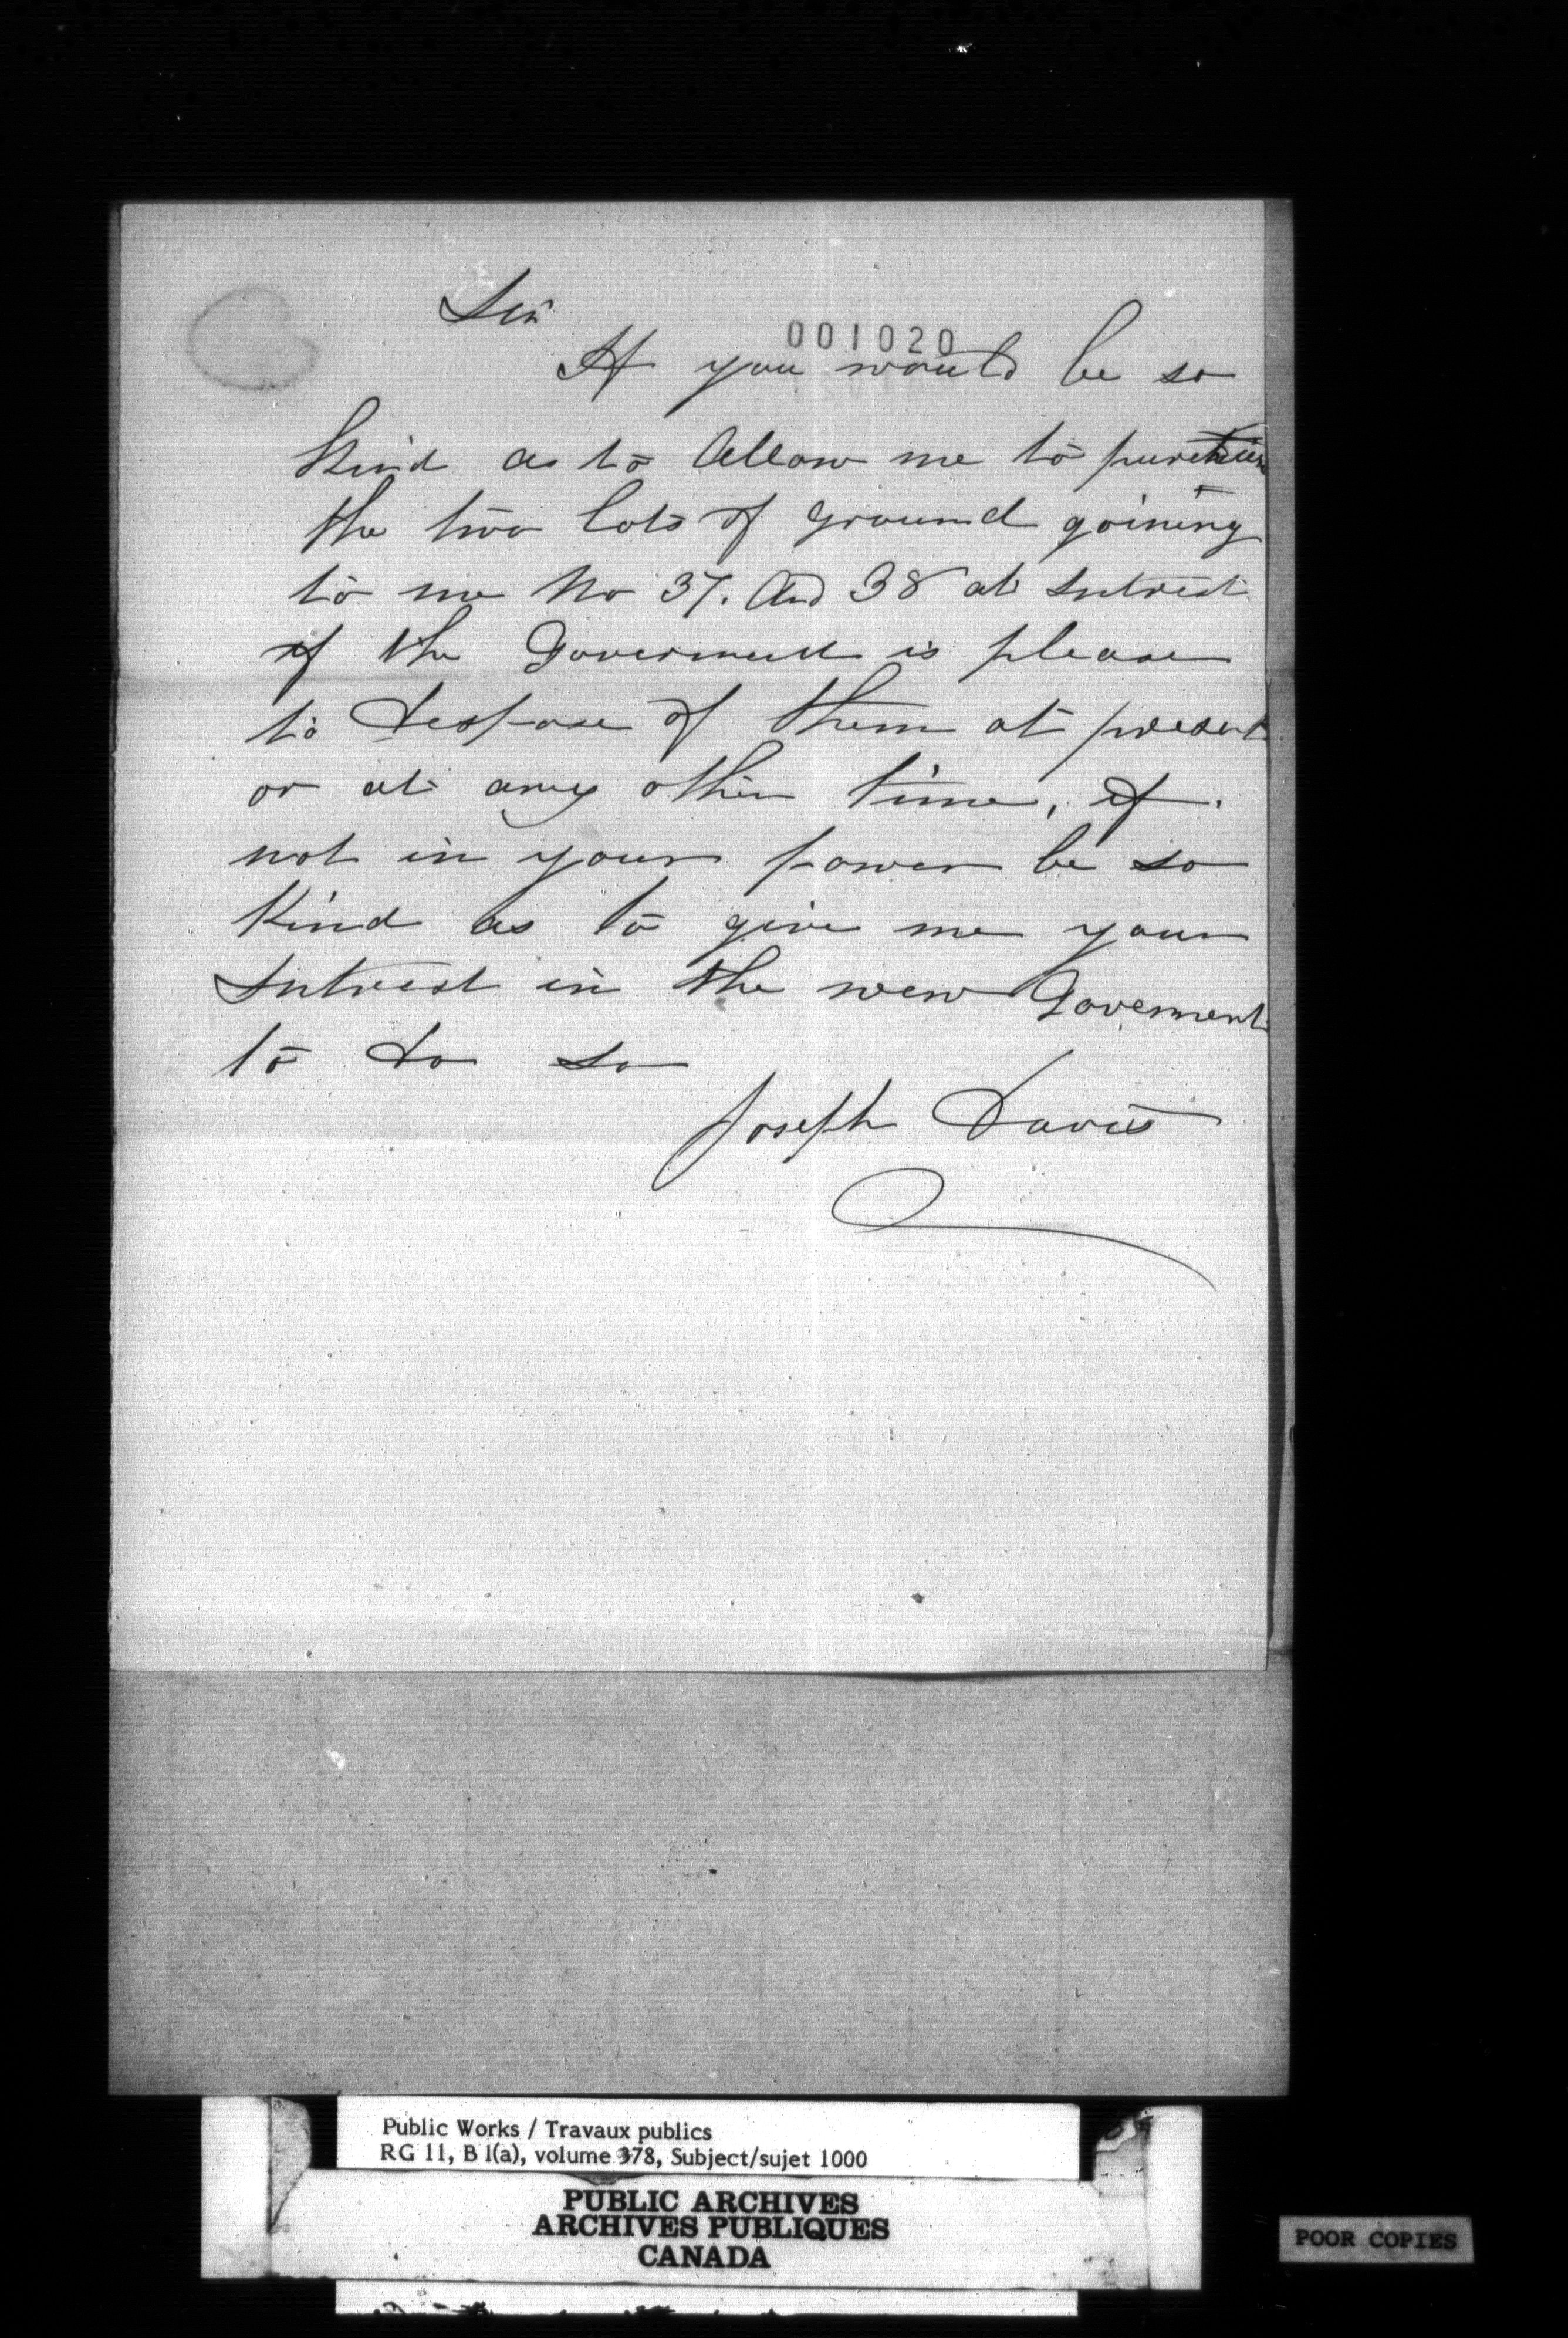 Sir
001020
If you would be so
kind as to allow me to purchase
the two lots of ground goining
to me No 37. And 38 at Intrest
if the Goverment is please
to despose of them at present
or at any other time, if.
not in your power be so
kind as to give me your
Intrest in the new Goverment
to do so
Joseph Davis
Public Works / Travaux publics
RG 11, B 1(a), volume 378, Subject/sujet 1000
PUBLIC ARCHIVES
ARCHIVES PUBLIQUES
CANADA
POOR COPIES